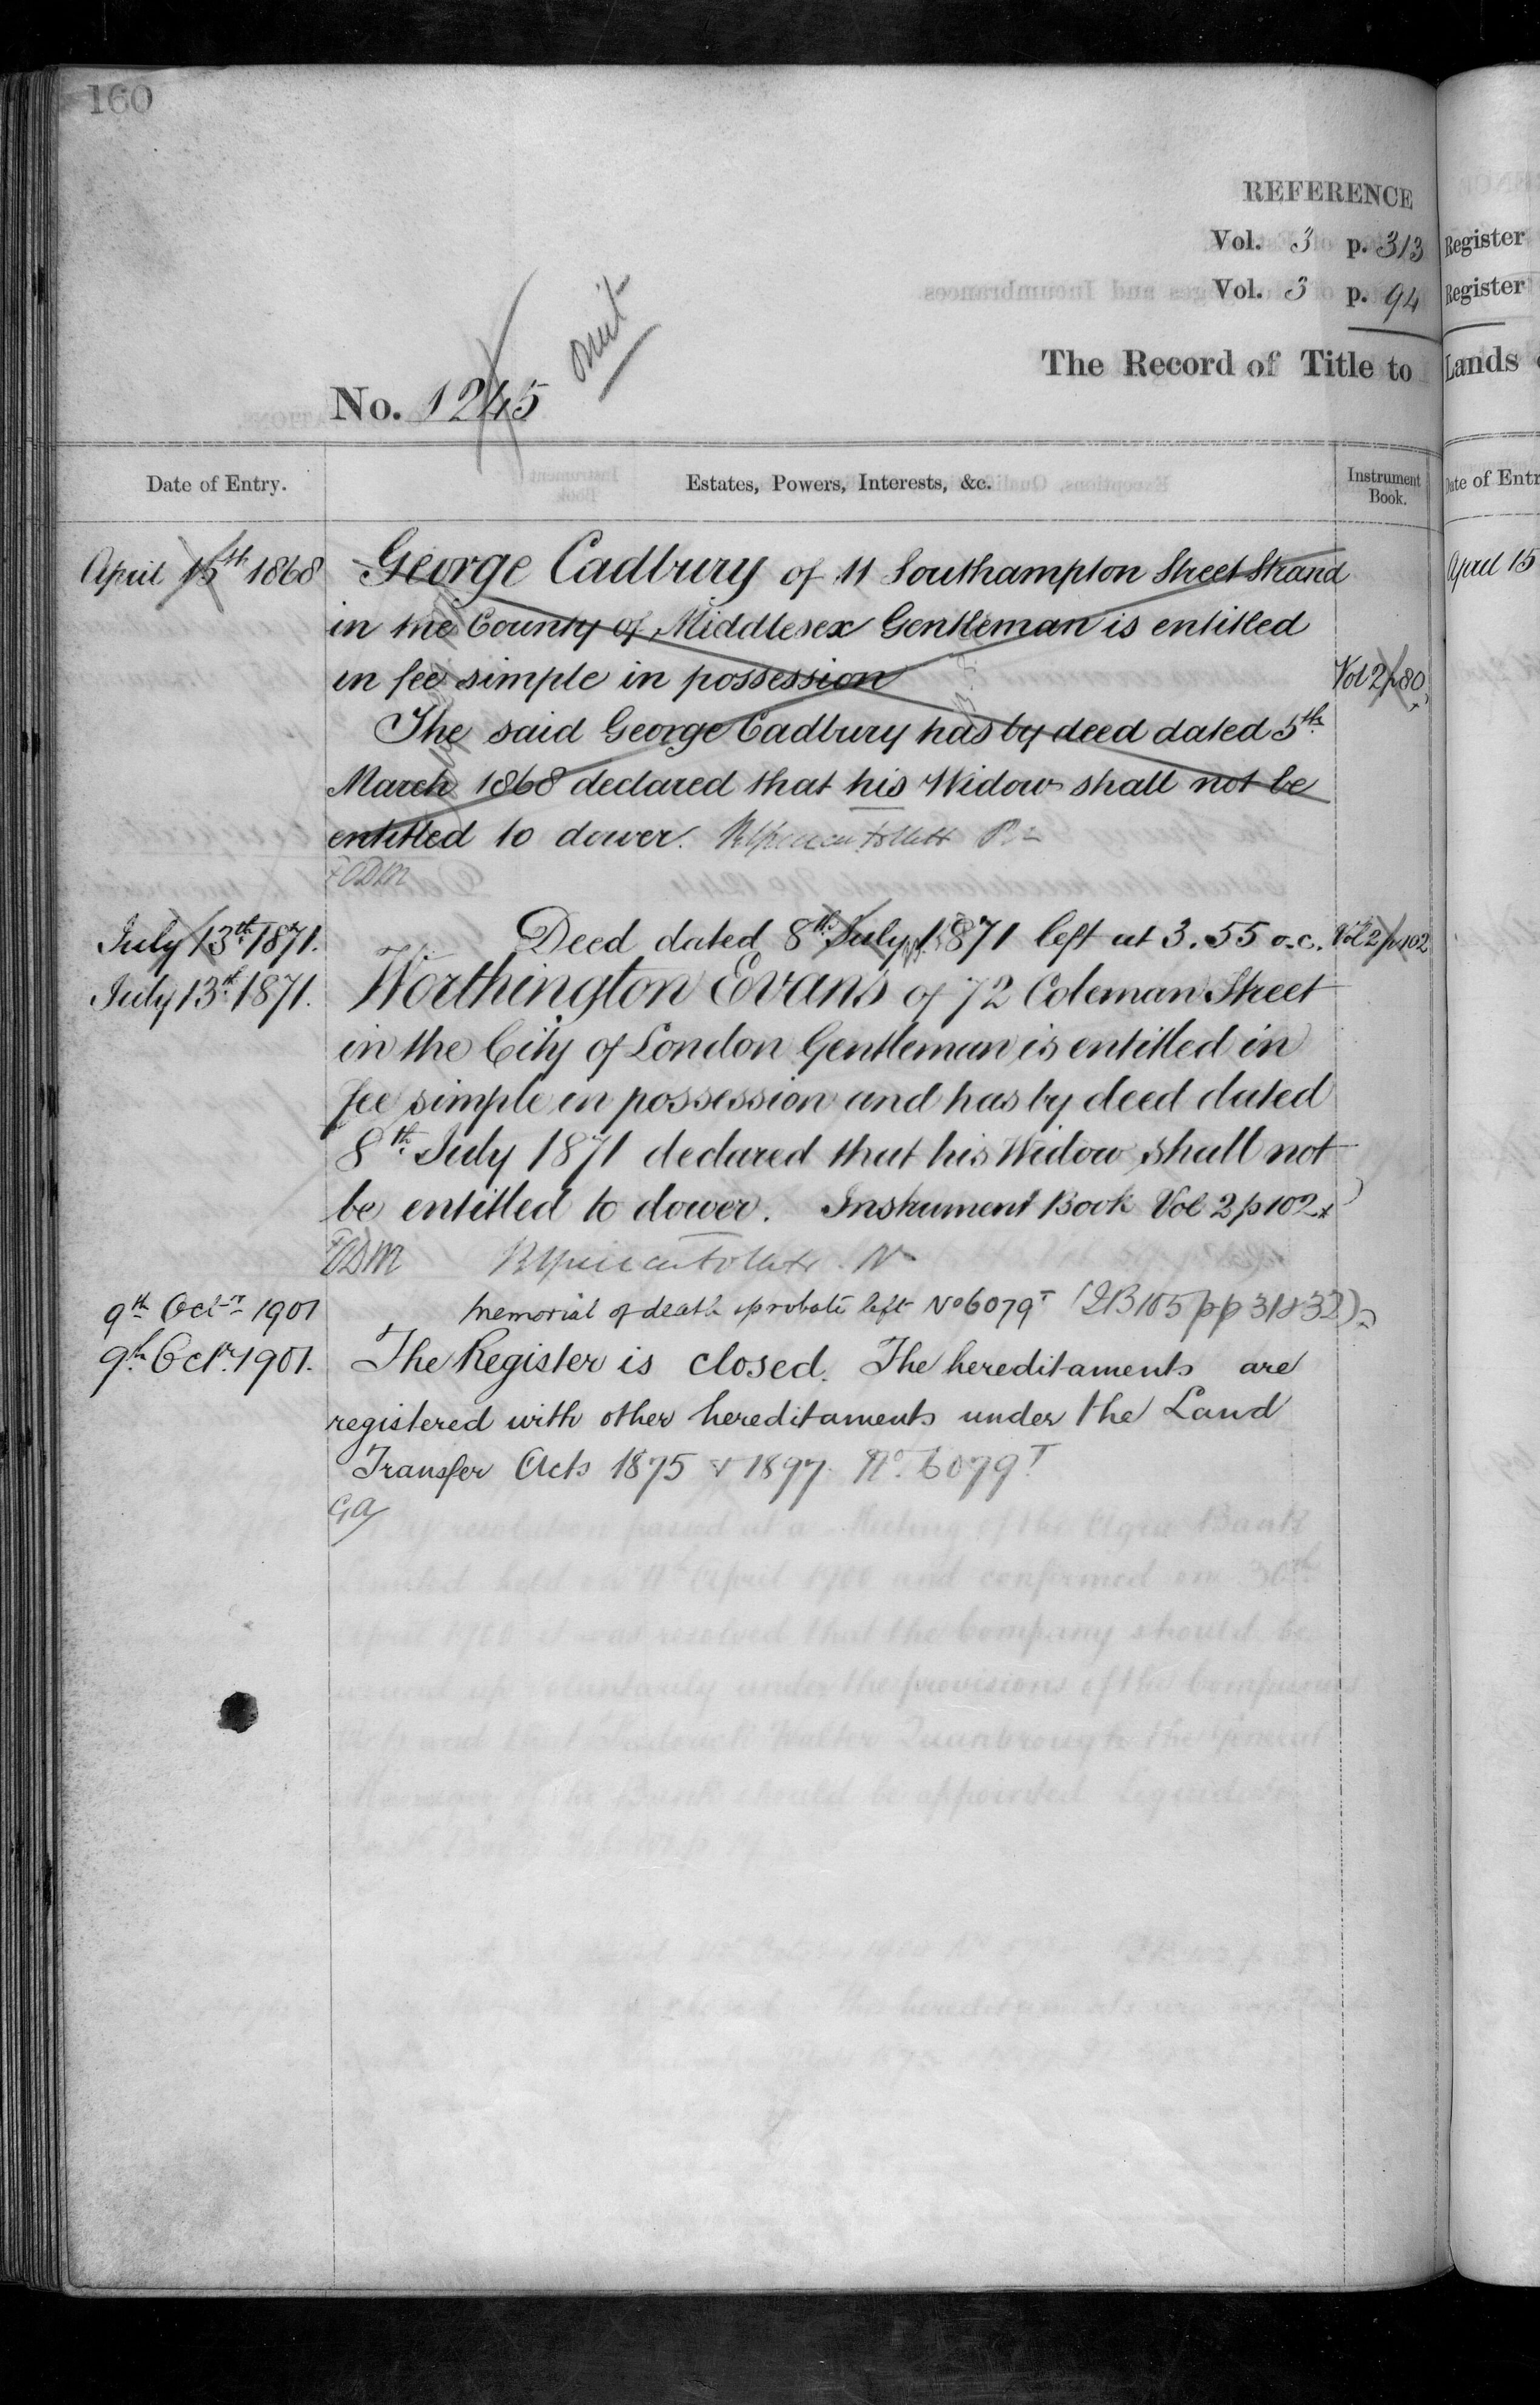 160
REFERENCE
Vol. 3 p. 313
Vol. 3 p. 94
Register
Register
omit
No. 1245
The Record of Title to
Lands
Date of Entry.
Estates, Powers, Interests, &c.
Instrument
Book.
Date of Entr
April 15th 1868 George Cadbury of 11 Southampton Street Strand
April 15
in the County of Middlesex Gentleman is entitled
in fee simple in possession Vol 2 p 80
The said George Cadbury has by deed dated 5th
March 1868 declared that his Widow shall not be
entitled to dower.
July 13th 1871. Deed dated 8th July 1871 left at 3.55 o.c. Vol 2 p 102
July 13th 1871. Worthington Evans of 72 Coleman Street
in the City of London Gentleman is entitled in
fee simple in possession and has by deed dated
8th July 1871 declared that his Widow shall not
be entitled to dower. Instrument Book Vol 2 p 102
9th Octr 1901 Memorial of death & probate left No 6079T (IB 105 pp 31 & 32)
9th Octr. 1901. The Register is closed. The hereditaments are
registered with other hereditaments under the Land
Transfer Acts 1875 & 1897. No. 6079T
GA